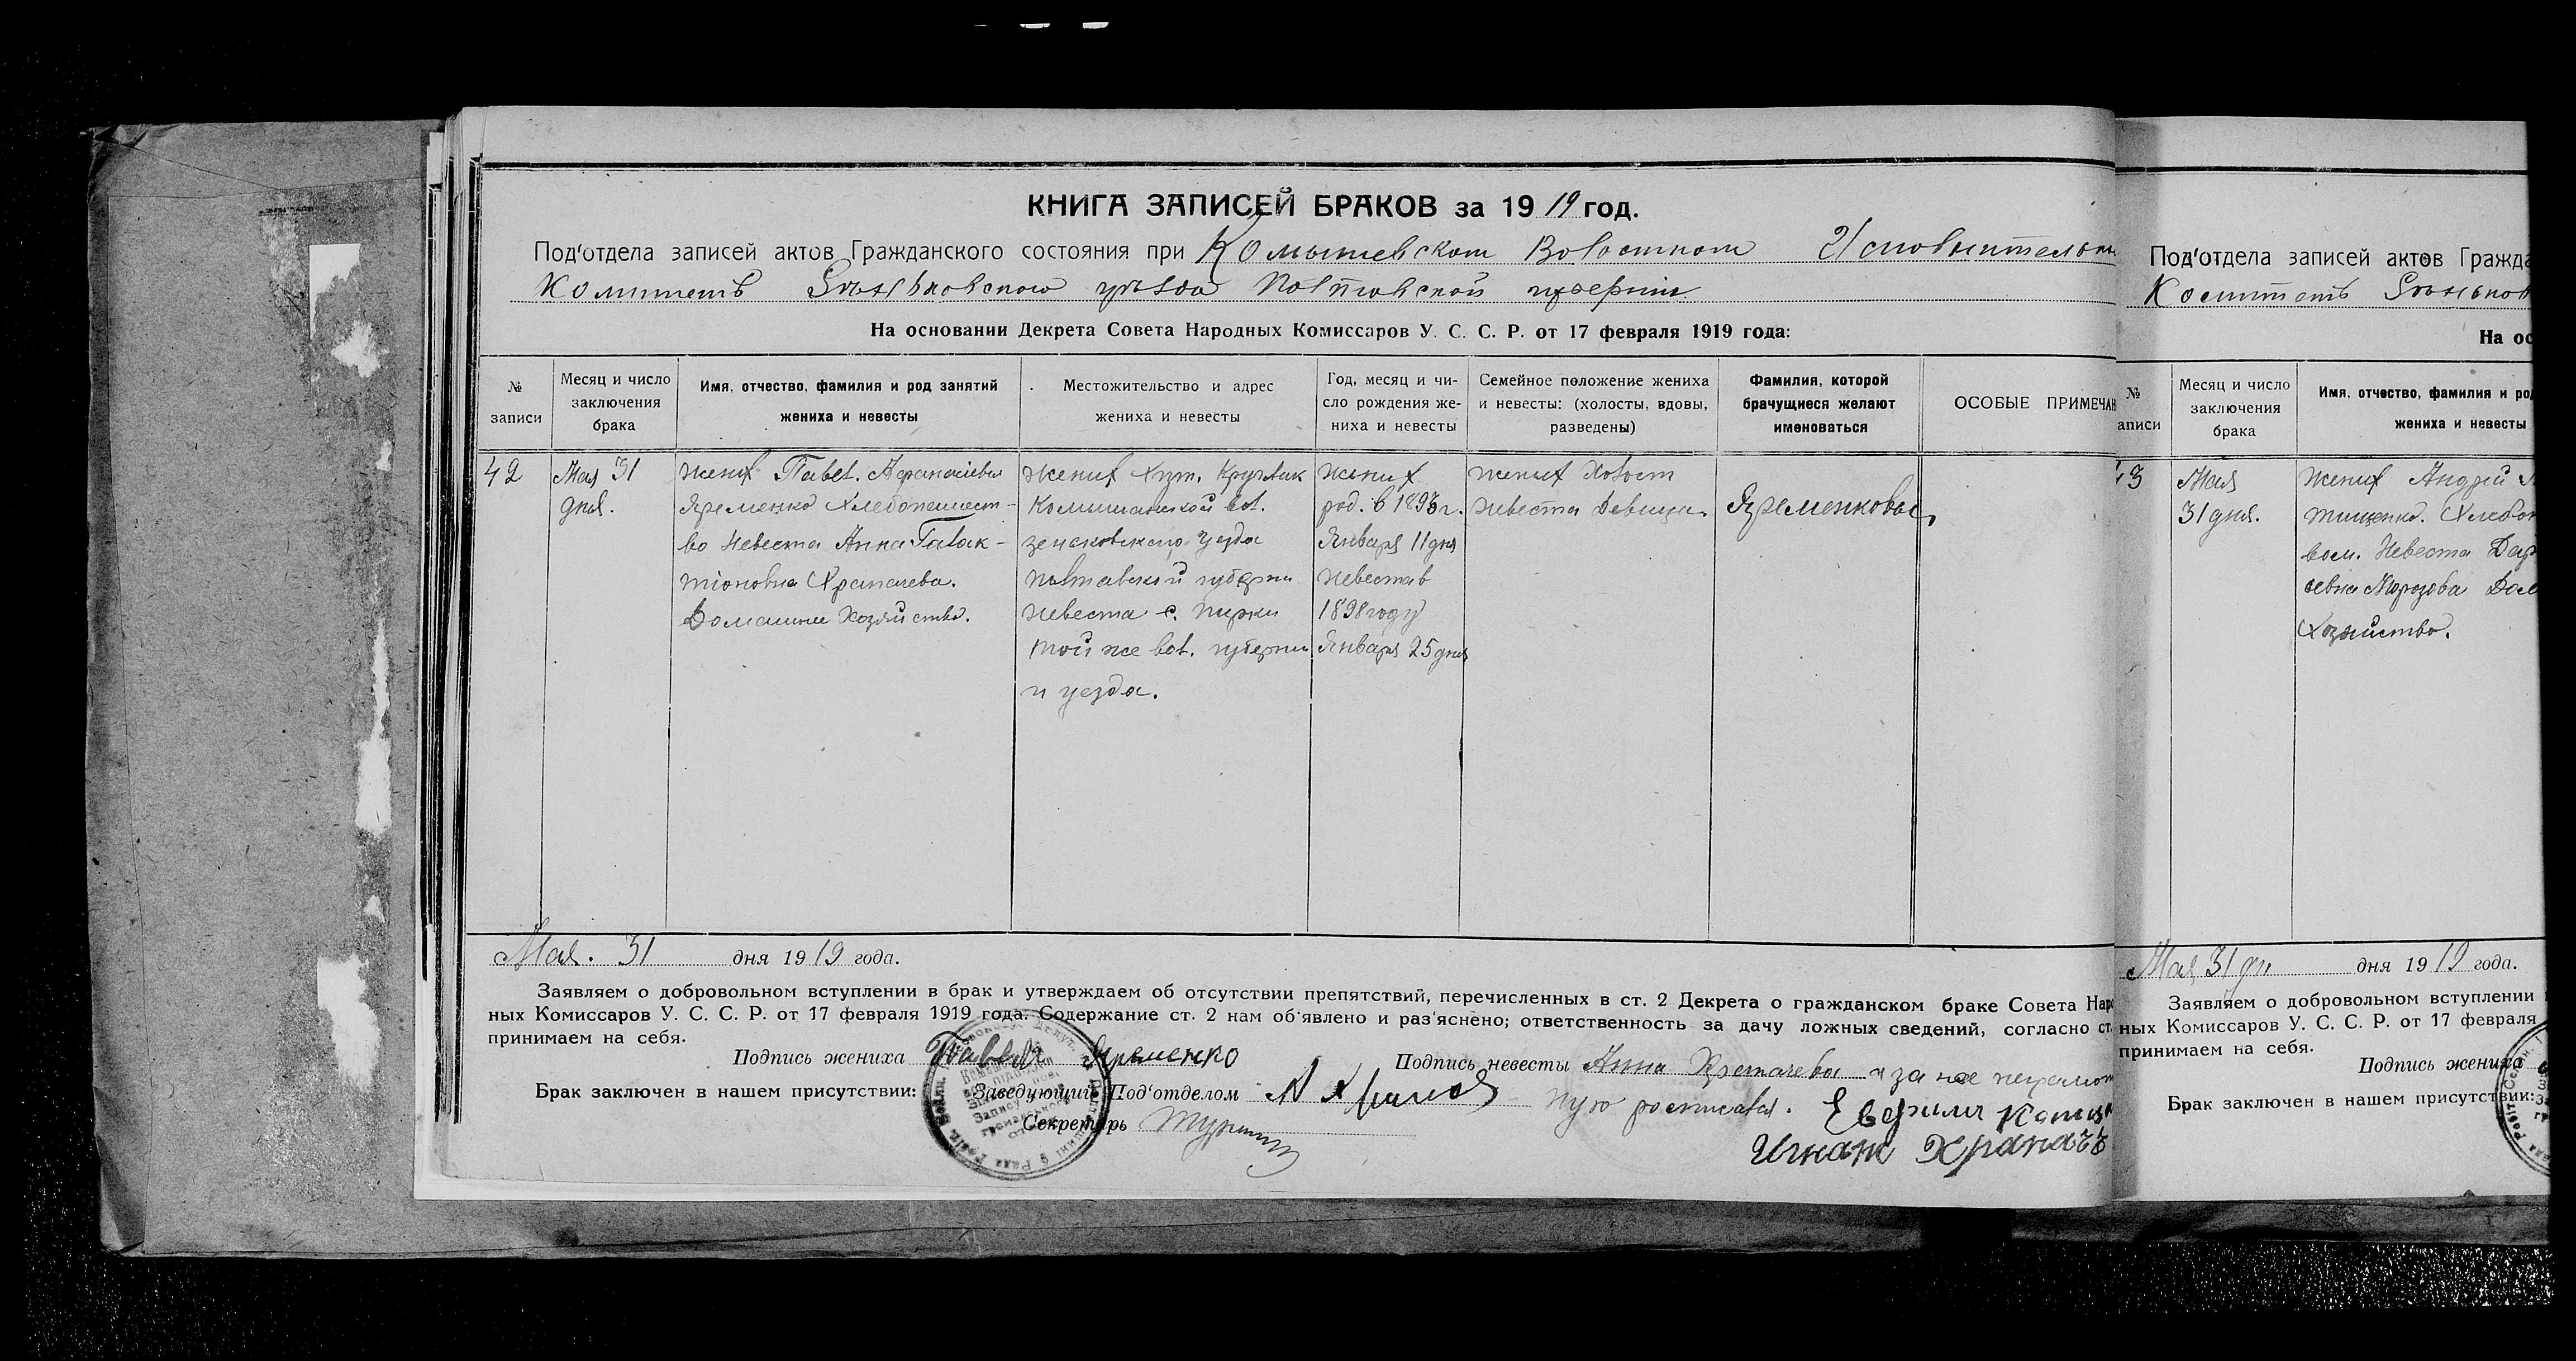 КНИГА ЗАПИСЕЙ БРАКОВ за 1919 год.
Под'отдела записей актов Гражданского состояния при Комышевском Волостном Исполнительн
Комитетъ Зѣньковского уѣзда Полтавской губернии
На основании Декрета Совета Народных Комиссаров У. С. С. Р. от 17 февраля 1919 года:
№ записи
Месяц и число заключения брака
Имя, отчество, фамилия и род занятий жениха и невесты
Местожительство и адрес жениха и невесты
Год, месяц и число рождения жениха и невесты
Семейное положение жениха и невесты: (холосты, вдовы, разведены)
Фамилия, которой брачущиеся желают именоваться
ОСОБЫЕ ПРИМЕЧАН
42
Мая 31
дня.
Жених Павел Афанасиевич
Яременко Хлебопашест-
во Невеста Анна Галак-
тіоновна Храпачева.
Домашнее Хозяйство.
Жених Хут. Кругляк
Комышанской вол.
зеньковского уезда
полтавской губерни
Невеста с. Пирки
той же вол. губерни
и уезда.
Жених
род. в 1893 г.
Января 11 дня
Невеста в
1898 году
Января 25 дня
Жених Холост
Невеста Девица.
Яременковы
Мая. 31 дня 1919 года.
Заявляем о добровольном вступлении в брак и утверждаем об отсутствии препятствий, перечисленных в ст. 2 Декрета о гражданском браке Совета Нар
ных Комиссаров У. С. С. Р. от 17 февраля 1919 года. Содержание ст. 2 нам об'явлено и раз'яснено; ответственность за дачу ложных сведений, согласно ст.
принимаем на себя.
Подпись жениха Павел Яременко
Подпись невесты Анна Храпачева а за нее неграмот
Брак заключен в нашем присутствии: Заведующий Под'отделом
ную росписался.
Секретарь
Игнат Храпачъ
Под'отдела записей актов Гражда
Комитетъ Зѣньков
На ос
№
аписи
Месяц и число заключения брака
Имя, отчество, фамилия и род
жениха и невесты
43
Мая
31 дня.
Жених Андрей
Тищенко. Хлебоп
вом. Невеста Дар
севна Морозова Дом
Хозяйство.
Мая 31 дн дня 1919 года.
Заявляем о добровольном вступлении
ных Комиссаров У. С. С. Р. от 17 февраля
принимаем на себя.
Подпись жениха
Брак заключен в нашем присутствии: